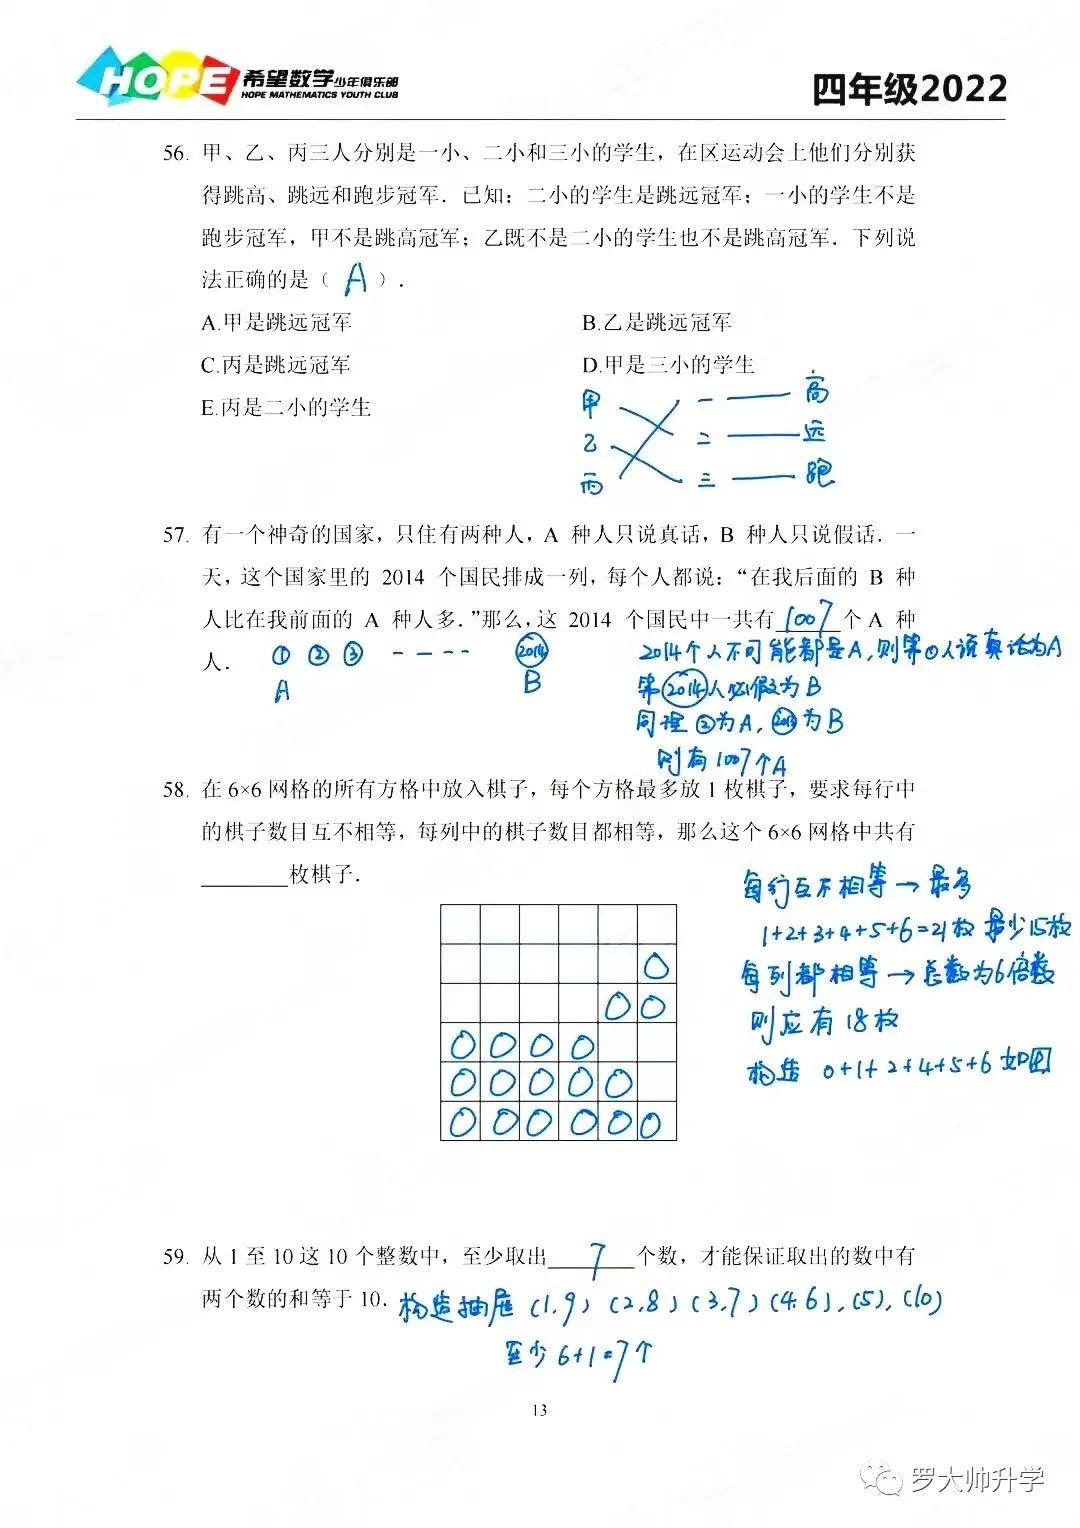 HOPE 希望数学少年俱乐部
HOPE MATHEMATICS YOUTH CLUB
四年级2022
56. 甲、乙、丙三人分别是一小、二小和三小的学生，在区运动会上他们分别获
得跳高、跳远和跑步冠军．已知：二小的学生是跳远冠军；一小的学生不是
跑步冠军，甲不是跳高冠军；乙既不是二小的学生也不是跳高冠军．下列说
法正确的是（ A ）．
A.甲是跳远冠军 B.乙是跳远冠军
C.丙是跳远冠军 D.甲是三小的学生
E.丙是二小的学生
甲 一 高
乙 二 远
丙 三 跑
57. 有一个神奇的国家，只住有两种人，A 种人只说真话，B 种人只说假话．一
天，这个国家里的 2014 个国民排成一列，每个人都说：“在我后面的 B 种
人比在我前面的 A 种人多．”那么，这 2014 个国民中一共有 1007 个 A 种
人．
① ② ③ ---- 2014
A B
2014个人不可能都是A，则第①人说真话为A
第2014人必假为B
同理②为A，2013为B
则有1007个A
58. 在 6×6 网格的所有方格中放入棋子，每个方格最多放 1 枚棋子，要求每行中
的棋子数目互不相等，每列中的棋子数目都相等，那么这个 6×6 网格中共有
________枚棋子．
每行互不相等→最多
1+2+3+4+5+6=21枚 最少15枚
每列都相等→总数为6倍数
则应有18枚
构造 0+1+2+4+5+6 如图
59. 从 1 至 10 这 10 个整数中，至少取出 7 个数，才能保证取出的数中有
两个数的和等于 10．
构造抽屉 (1.9) (2.8) (3.7) (4.6), (5), (10)
至少 6+1=7个
13
罗大帅升学